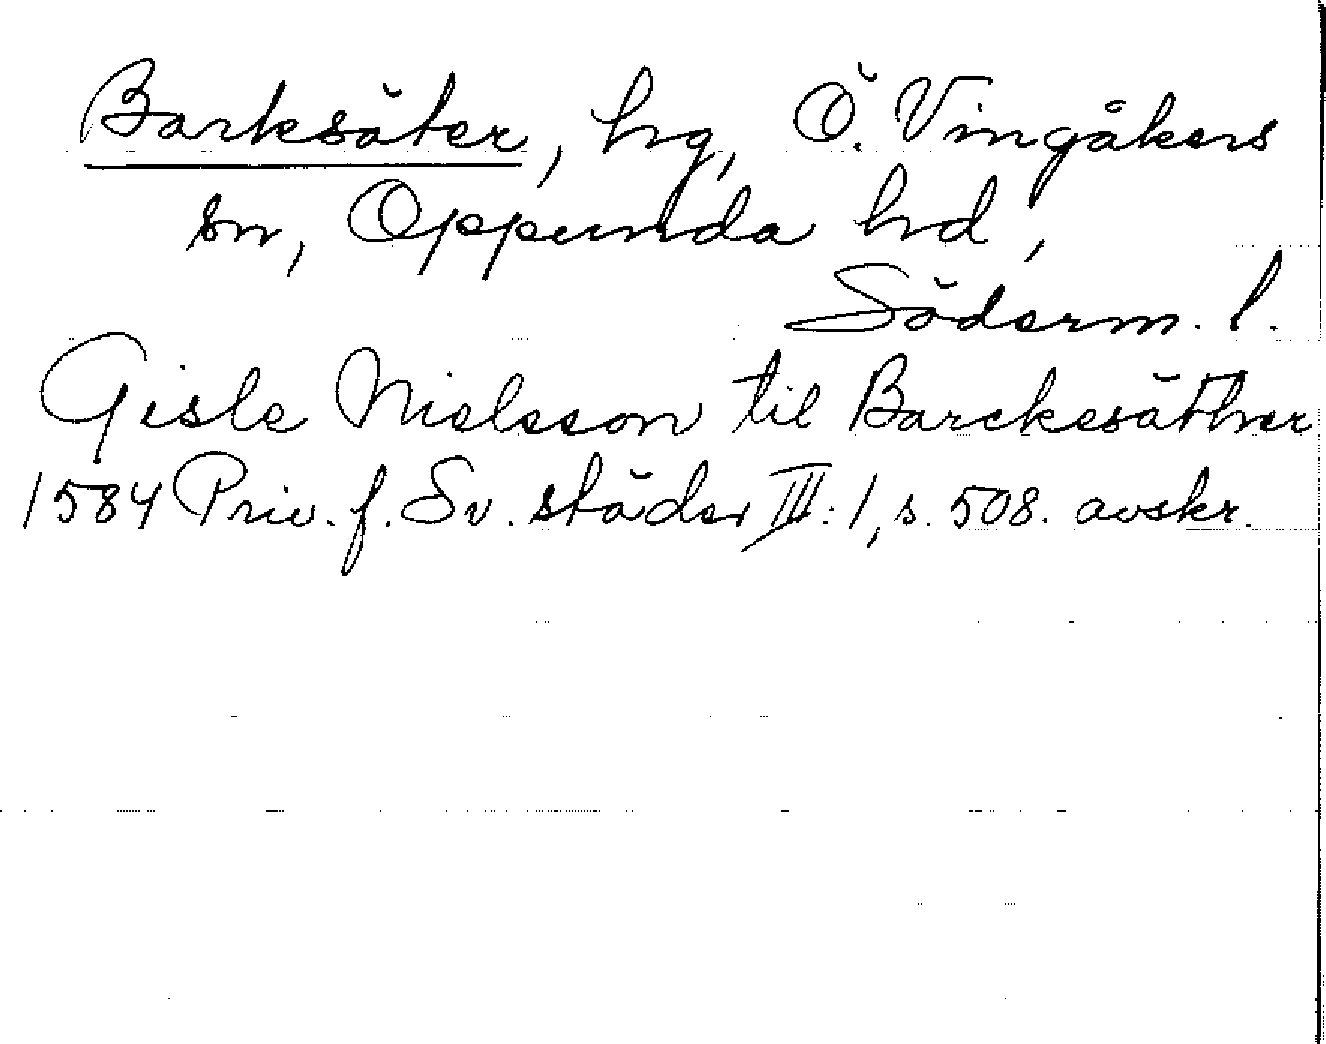 Barksäter, hg, Ö. Vingåkers
sn, Oppunda hd,
Söderm. l.
Gisle Nielsson til Barckesäther
1584 Priv. f. Sv. städer III: 1, s. 508. avskr.